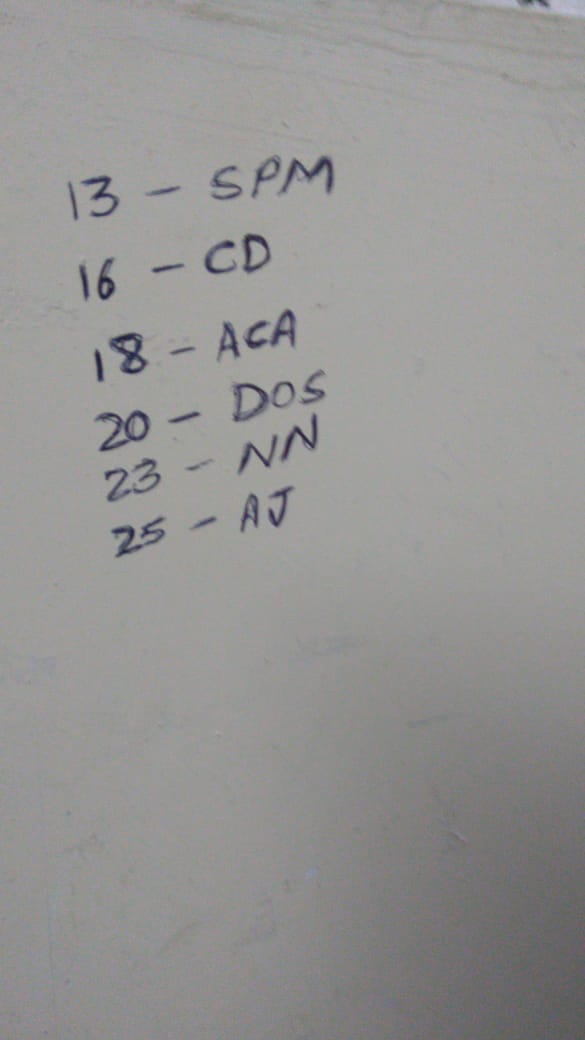 13 - SPM
16 - CD
18 - ACA
20 - DOS
23 - NN
25 - AJ